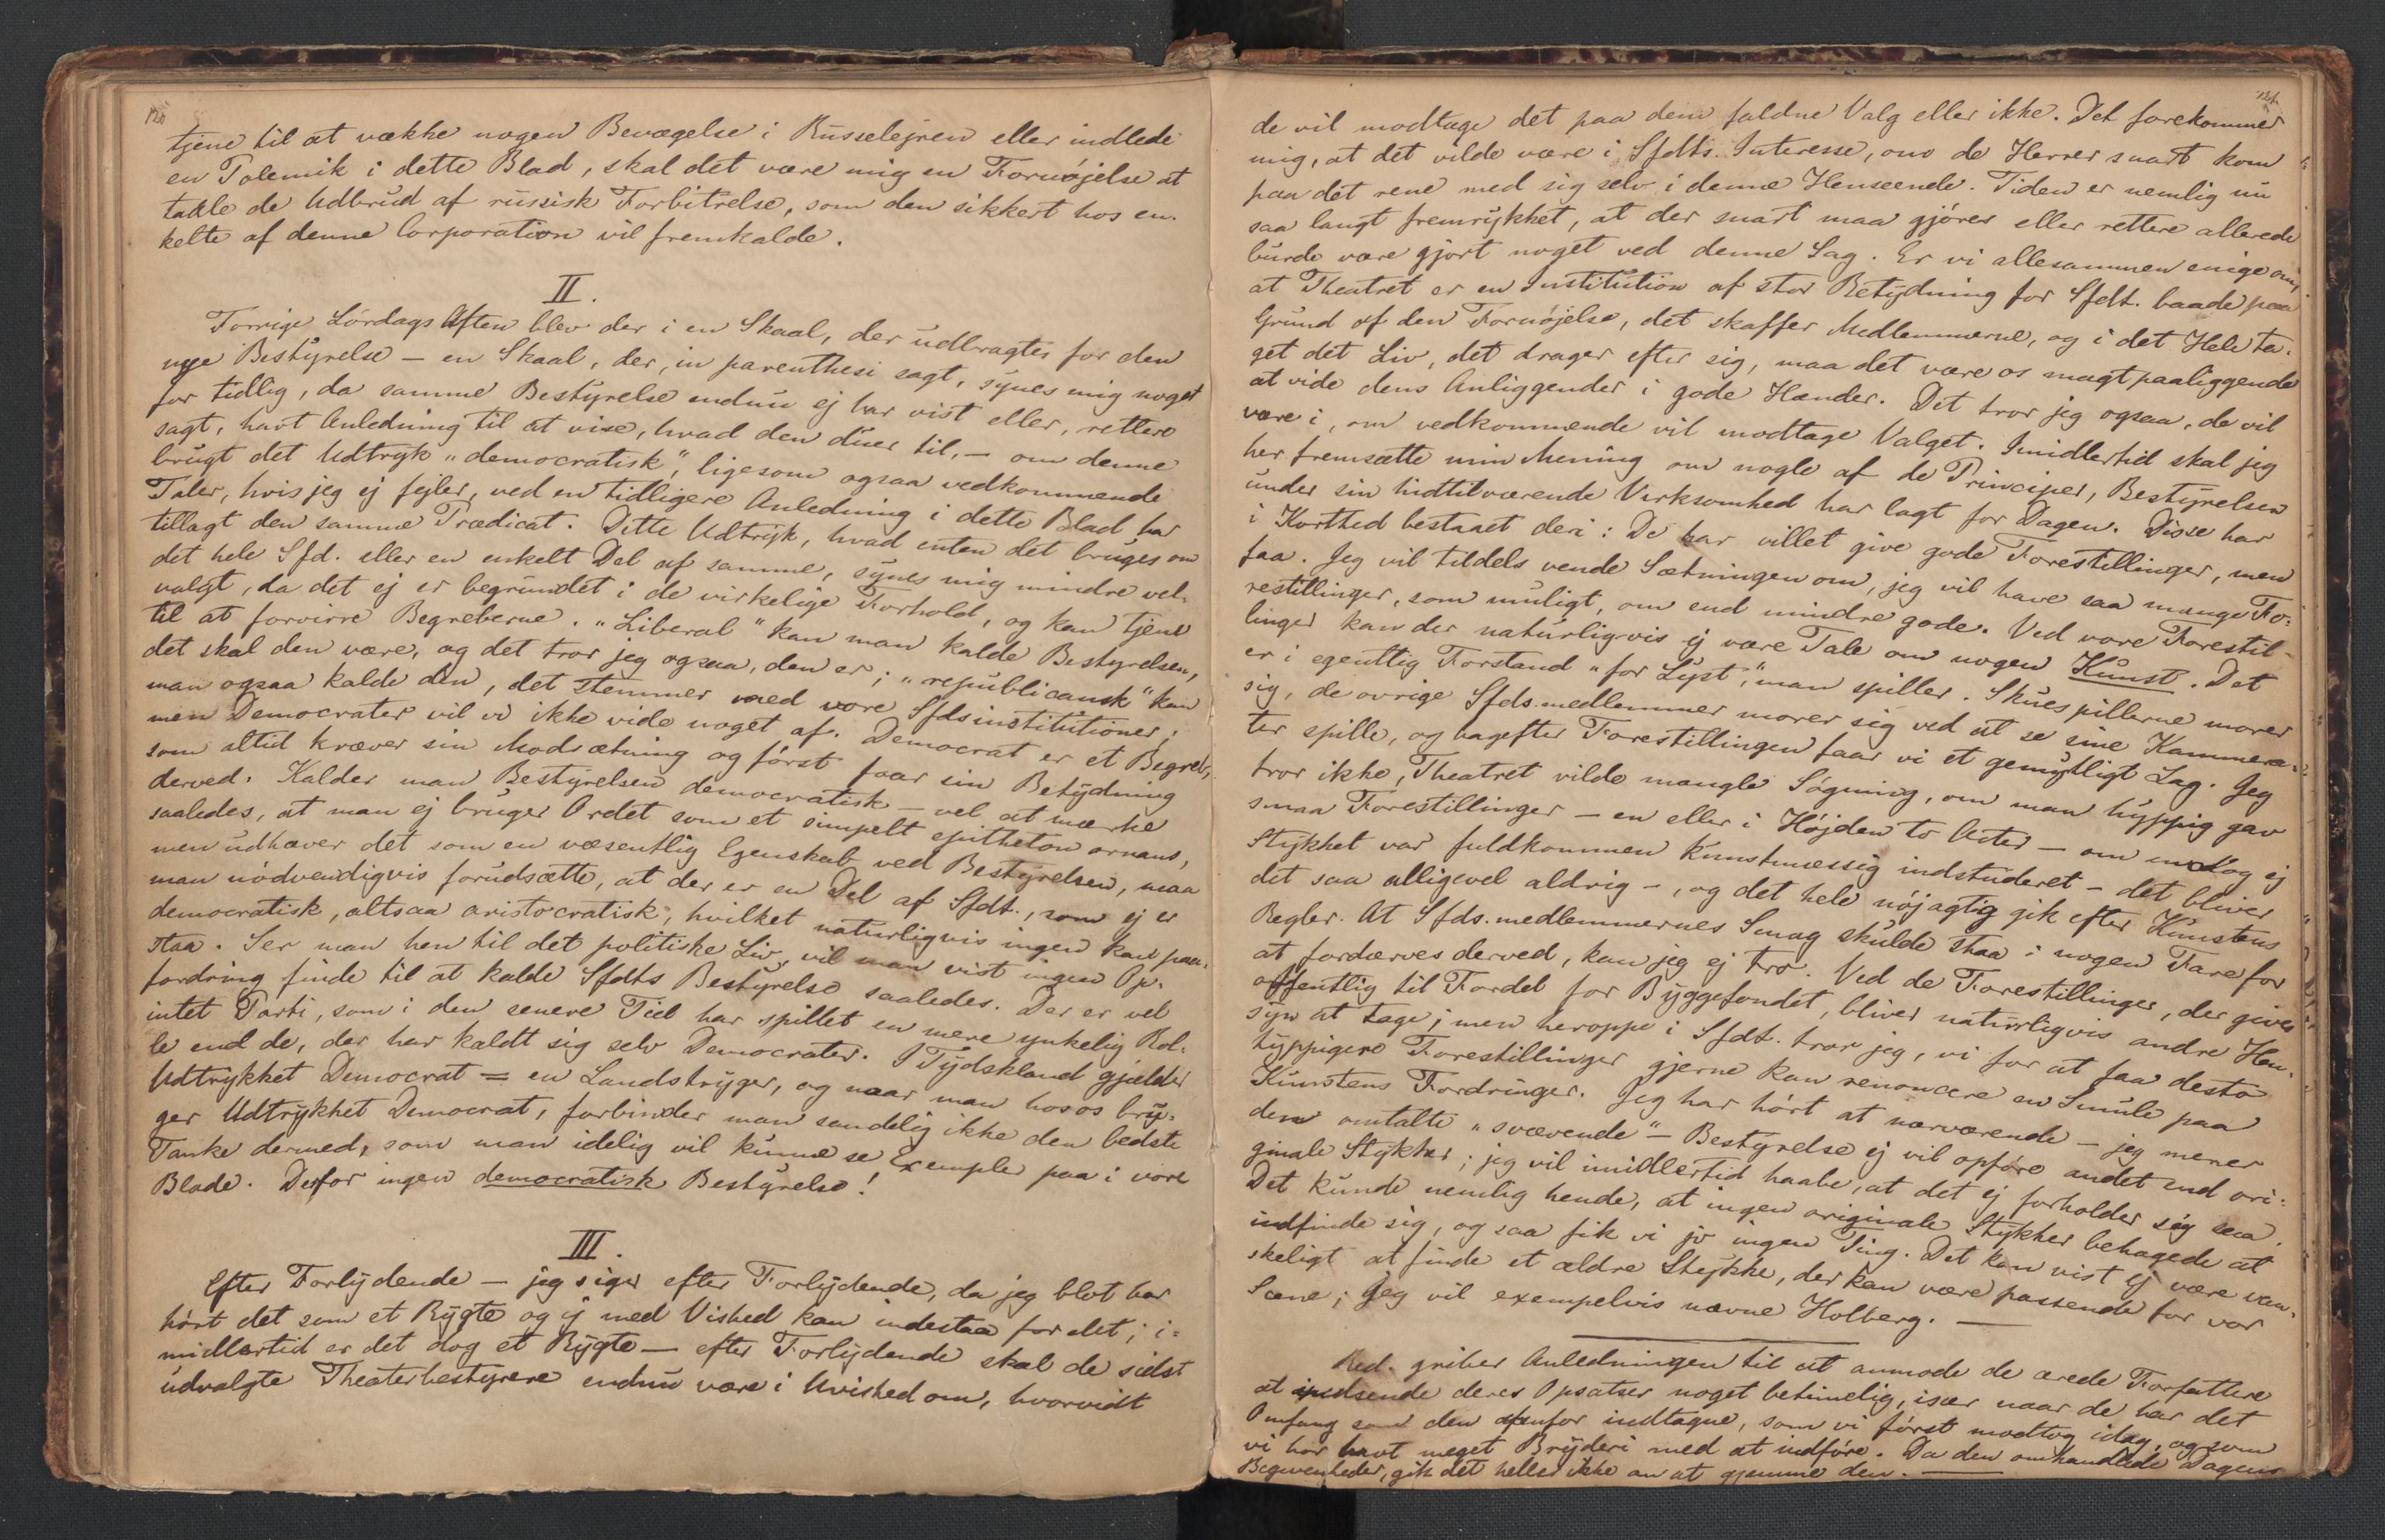 120
tjene til at vække nogen Bevægelse i Russelejren eller indlede
en Polemik i dette Blad, skal det være mig en Fornøjelse at
takle de Udbrud af russisk Forbitrelse, som den sikkert hos en-
kelte af denne Corporation vil fremkalde.
II.
Forrige Lørdags Aften blev der i en Skaal, der udbragtes for den
nye Bestyrelse – en Skaal, der, in parenthesi sagt, synes mig noget
for tidlig, da samme Bestyrelse endnu ej har vist eller, rettere
sagt, havt Anledning til at vise, hvad den duer til, – om denne
brugt det Udtryk "democratisk", ligesom ogsaa vedkommende
Taler, hvis jeg ej fejler, ved en tidligere Anledning i dette Blad har
tillagt den samme Prædicat. Dette Udtryk, hvad enten det bruges om
det hele Sfd. eller en enkelt Del af samme, synes mig mindre vel-
valgt, da det ej er begrundet i de virkelige Forhold, og kan tjene
til at forvirre Begreberne. "Liberal" kan man kalde Bestyrelsen,
det skal den være, og det tror jeg ogsaa, den er; "republicansk" kan
man ogsaa kalde den, det stemmer med vore Sfdsinstitutioner;
men Democrater vil vi ikke vide noget af. Democrat er et Begreb,
som altid kræver sin Modsætning og først faar sin Betydning
derved. Kalder man Bestyrelsen democratisk – vel at mærke
saaledes, at man ej bruger Ordet som et simpelt epitheton ornans,
men udhæver det som en væsentlig Egenskab ved Bestyrelsen, maa
man nødvendigvis forudsætte, at der er en Del af Sfdt., som ej er
democratisk, altsaa aristocratisk, hvilket naturligvis ingen kan paa-
staa. Ser man hen til det politiske Liv, vil man vist ingen Op-
fordring finde til at kalde Sfdts Bestyrelse saaledes. Der er vel
intet Parti, som i den senere Tid har spillet en mere ynkelig Rol-
le end de, der har kaldt sig selv Democrater. I Tydskland gjælder
Udtrykket Democrat = en Landstryger, og naar man hos os bru-
ger Udtrykket Democrat, forbinder man sandelig ikke den bedste
Tanke dermed, som man idelig vil kunne se Exempler paa i vore
Blade. Derfor ingen democratisk Bestyrelse!
III.
Efter Forlydende – jeg siger efter Forlydende, da jeg blot har
hørt det som et Rygte og ej med Vished kan indestaa for det; i-
midlertid er det dog et Rygte – efter Forlydende skal de sidst
udvalgte Theaterbestyrere endnu være i Uvished om, hvorvidt
121
de vil modtage det paa dem faldne Valg eller ikke. Det forekommer
mig, at det vilde være i Sfdts. Interesse, om de Herrer snart kom
paa det rene med sig selv i denne Henseende. Tiden er nemlig nu
saa langt fremrykket, at der snart maa gjøres eller rettere allerede
burde være gjort noget ved denne Sag. Er vi allesammen enige om,
at Theatret er en Institution af stor Betydning for Sfdt. baade paa
Grund af den Fornøjelse, det skaffer Medlemmerne, og i det Hele ta-
get det Liv, det drager efter sig, maa det være os magtpaaliggende
at vide dens Anliggender i gode Hænder. Det tror jeg ogsaa, de vil
være i, om vedkommende vil modtage Valget. Imidlertid skal jeg
her fremsætte min Mening om nogle af de Principer, Bestyrelsen
under sin hidtilværende Virksomhed har lagt for Dagen. Disse har
i Korthed bestaaet deri: De har villet give gode Forestillinger, men
faa. Jeg vil tildels vende Sætningen om, jeg vil have saa mange Fo-
restillinger, som muligt, om end mindre gode. Ved vore Forestil-
linger kan der naturligvis ej være Tale om nogen Kunst. Det
er i egentlig Forstand "for Lyst", man spiller. Skuespillerne morer
sig, de øvrige Sfds.medlemmer morer sig ved at se sine Kammera-
ter spille, og bagefter Forestillingen faar vi et gemytligt Lag. Jeg
tror ikke, Theatret vilde mangle Søgning, om man hyppig gav
smaa Forestillinger – en eller i Højden to Acter – om endog ej
Stykket var fuldkommen kunstmæssig indstuderet – det bliver
det saa alligevel aldrig –, og det hele nøjagtig gik efter Kunstens
Regler. At Sfds.medlemmernes Smag skulde staa i nogen Fare for
at fordærves derved, kan jeg ej tro. Ved de Forestillinger, der gives
offentlig til Fordel for Byggefondet, bliver naturligvis andre Hen-
syn at tage; men heroppe i Sfdt. tror jeg, vi for at faa desto
hyppigere Forestillinger gjerne kan renoncere en Smule paa
Kunstens Fordringer. Jeg har hørt at nærværende – jeg mener
den omtalte "svævende" – Bestyrelse ej vil opføre andet end ori-
ginale Stykker; jeg vil imidlertid haabe, at det ej forholder sig saa.
Det kunde nemlig hende, at ingen originale Stykker behagede at
indfinde sig, og saa fik vi jo ingen Ting. Det kan vist ej være van-
skeligt at finde et ældre Stykke, der kan være passende for vor
Scene; jeg vil exempelvis nævne Holberg. –
Red. griber Anledningen til at anmode de ærede Forfattere
at indsende deres Opsatser noget betimelig, især naar de har det
Omfang som den ovenfor indtagne, som vi først modtog idag, og som
vi har havt meget Bryderi med at indføre. Da den omhandlede Dagens
Begivenheder, gik det heller ikke an at gjemme den. –